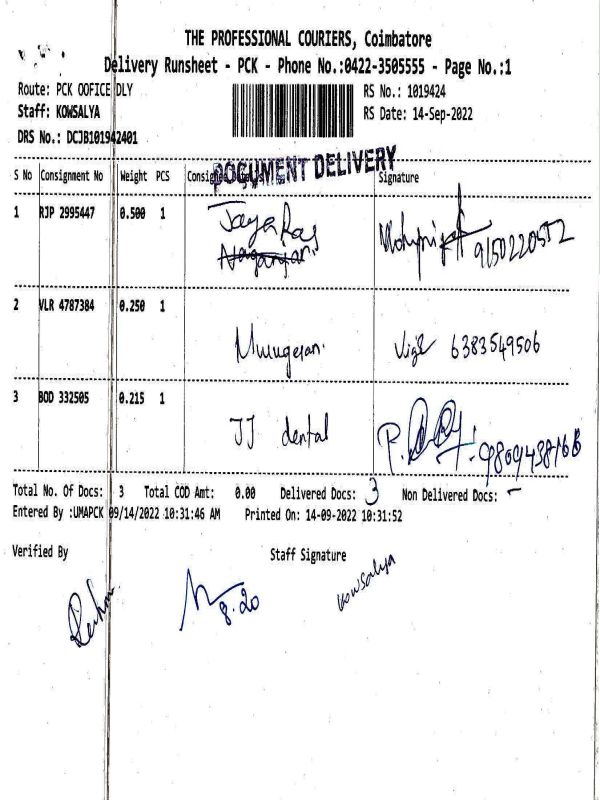 THE PROFESSIONAL COURIERS, Coimbatore
Delivery Runsheet - PCK - Phone No.:0422-3505555 - Page No.:1
Route: PCK OOFICE DLY
RS No.: 1019424
Staff: KOWSALYA
RS Date: 14-Sep-2022
DRS No.: DCJB101942401
DOCUMENT DELIVERY
S No Consignment No Weight PCS Signature
1 RJP 2995447 0.500 1 9150220572
2 VLR 4787384 0.250 1 Murugesan. 6383549506
3 BOD 332505 0.215 1 JJ dental
Total No. Of Docs: 3 Total COD Amt: 0.00 Delivered Docs: 3 Non Delivered Docs: -
Entered By :UMAPCK 09/14/2022 10:31:46 AM Printed On: 14-09-2022 10:31:52
Verified By Staff Signature
8.20 kowsalya